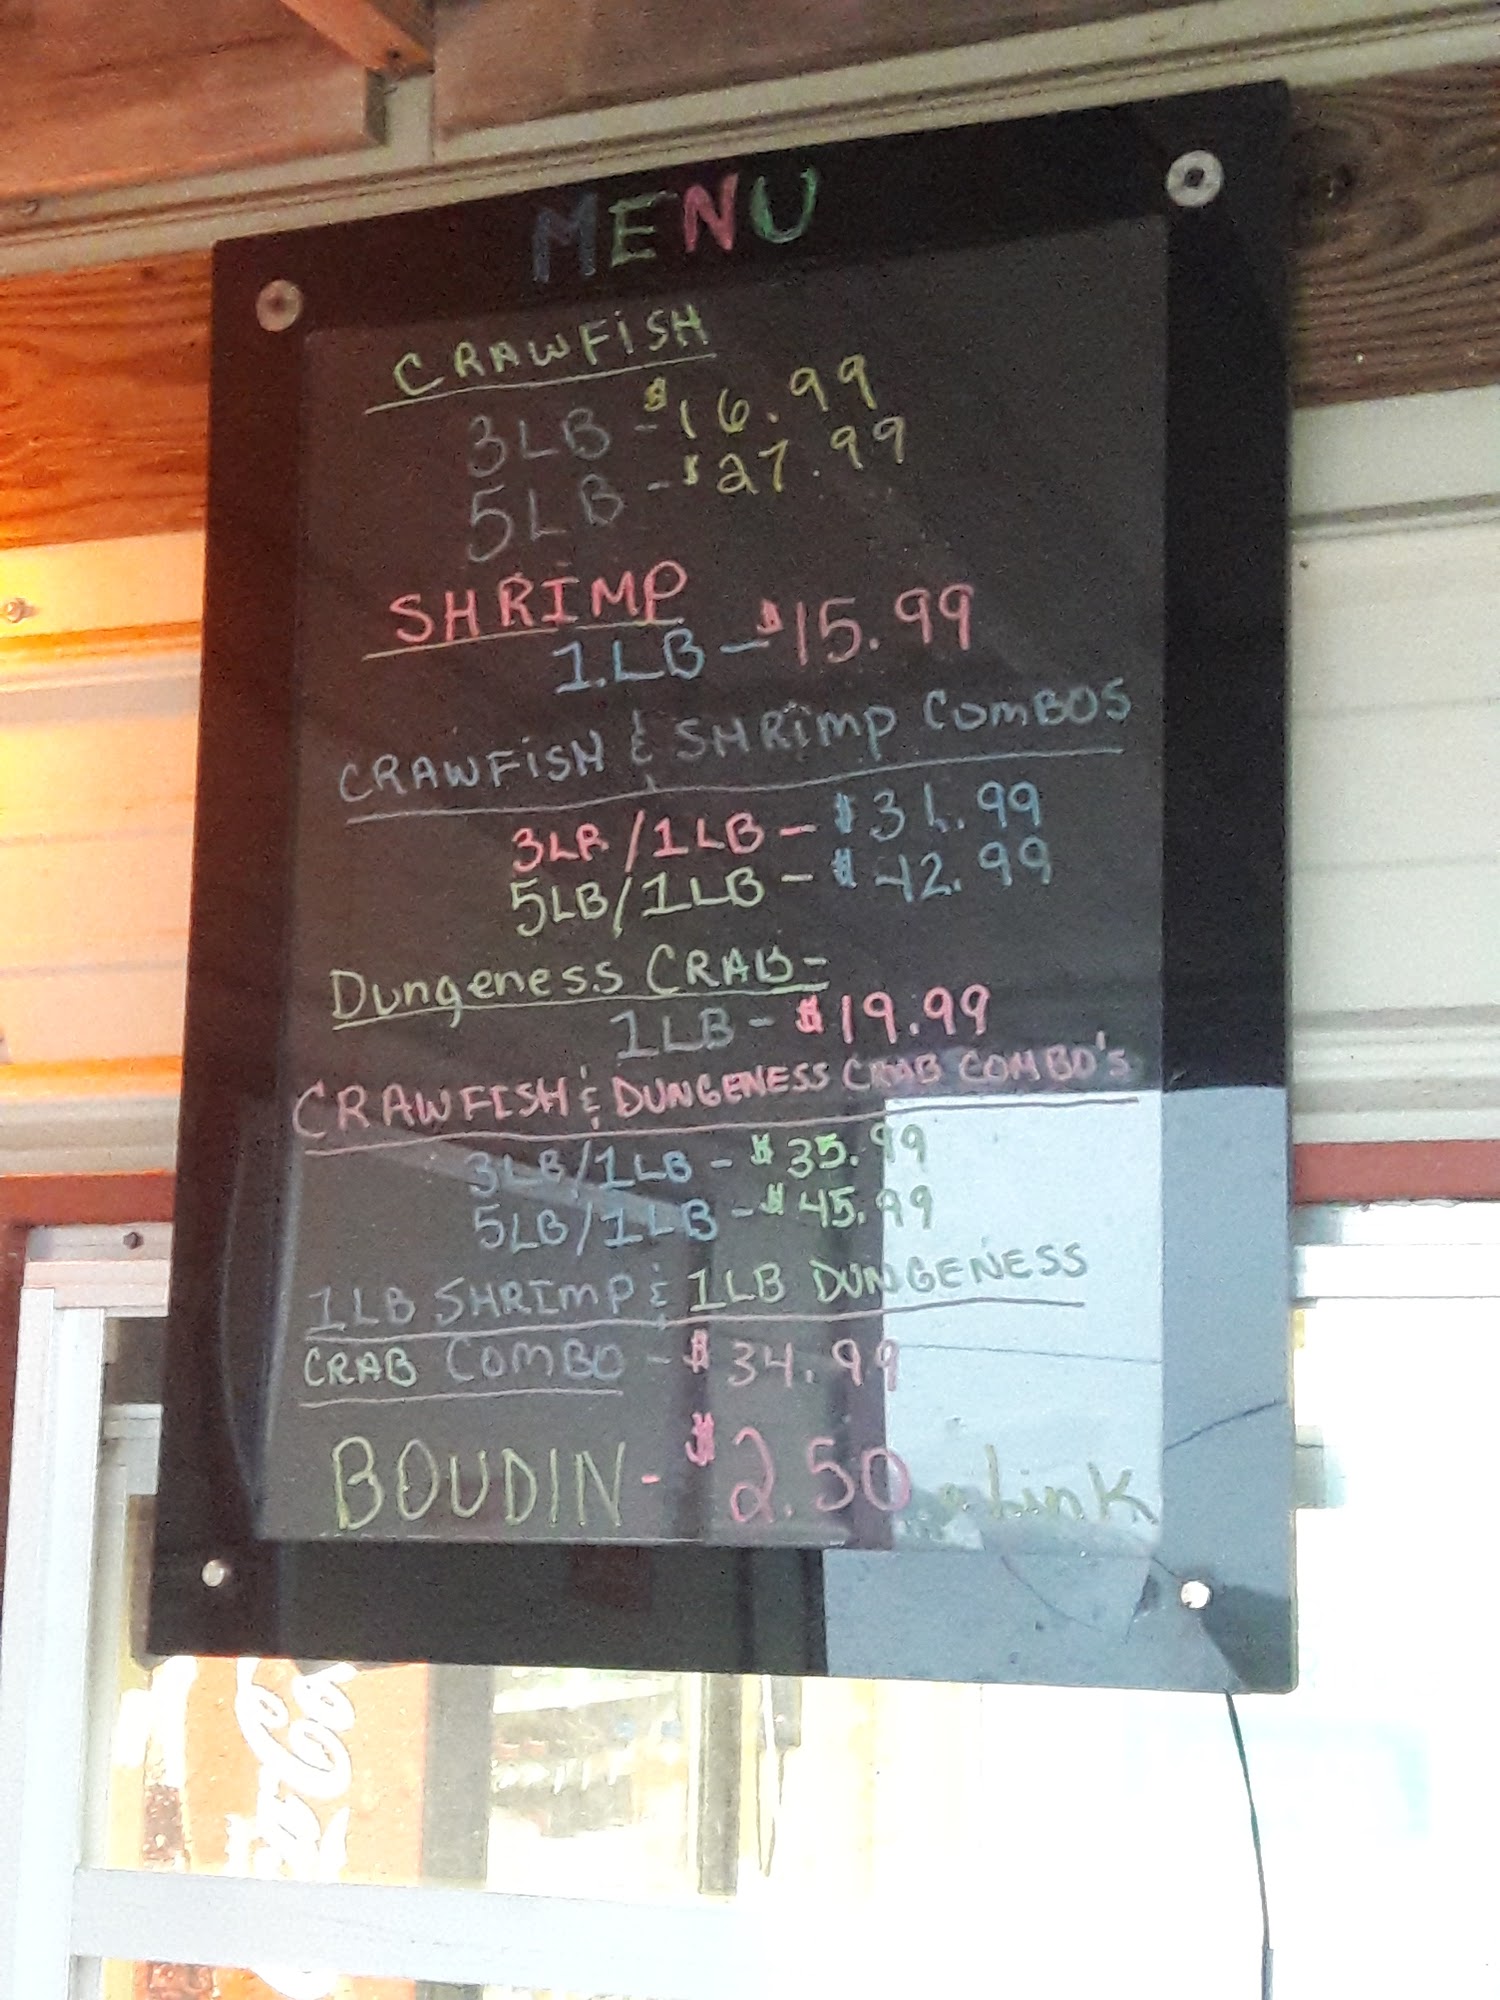 MENU
CRAWFiSH
3LB - $16.99
5LB - $27.99
SHRIMP
1LB - $15.99
CRAWFiSH & SHRimp COmBOS
3LB/1LB - $31.99
5LB/1LB - $42.99
Dungeness CRAB-
1LB - $19.99
CRAWFISH & DUNGENESS CRAB COMBO'S
3LB/1LB - $35.99
5LB/1LB - $45.99
1LB SHRImP & 1LB DUNGENESS
CRAB COMBO - $34.99
BOUDIN - $2.50 Link
Coca-Cola